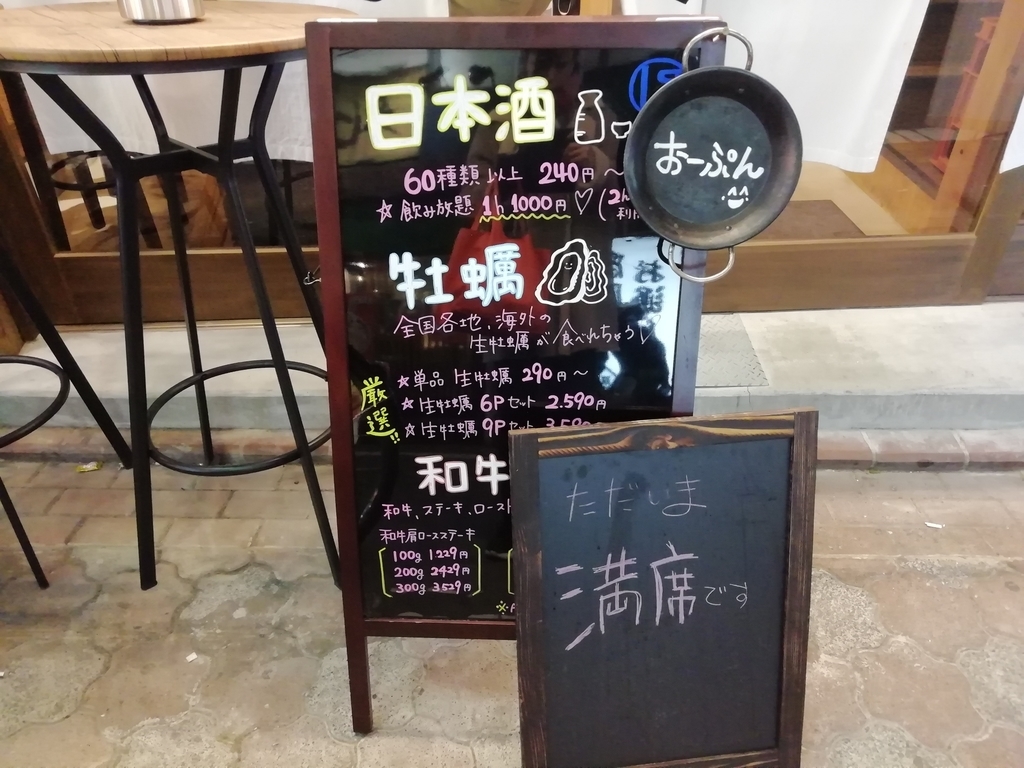 日本酒
60種類以上 240円〜
☆飲み放題 1h 1000円♡(2h
利用
おーぷん
牡蠣
全国各地、海外の
生牡蠣が食べれちゃう♡
厳選!!
☆単品 生牡蠣 290円〜
☆生牡蠣 6Pセット 2.590円
☆生牡蠣 9Pセット
和牛
和牛、ステーキ、ロースト
和牛肩ロースステーキ
100g 1229円
200g 2429円
300g 3529円
ただいま
満席です